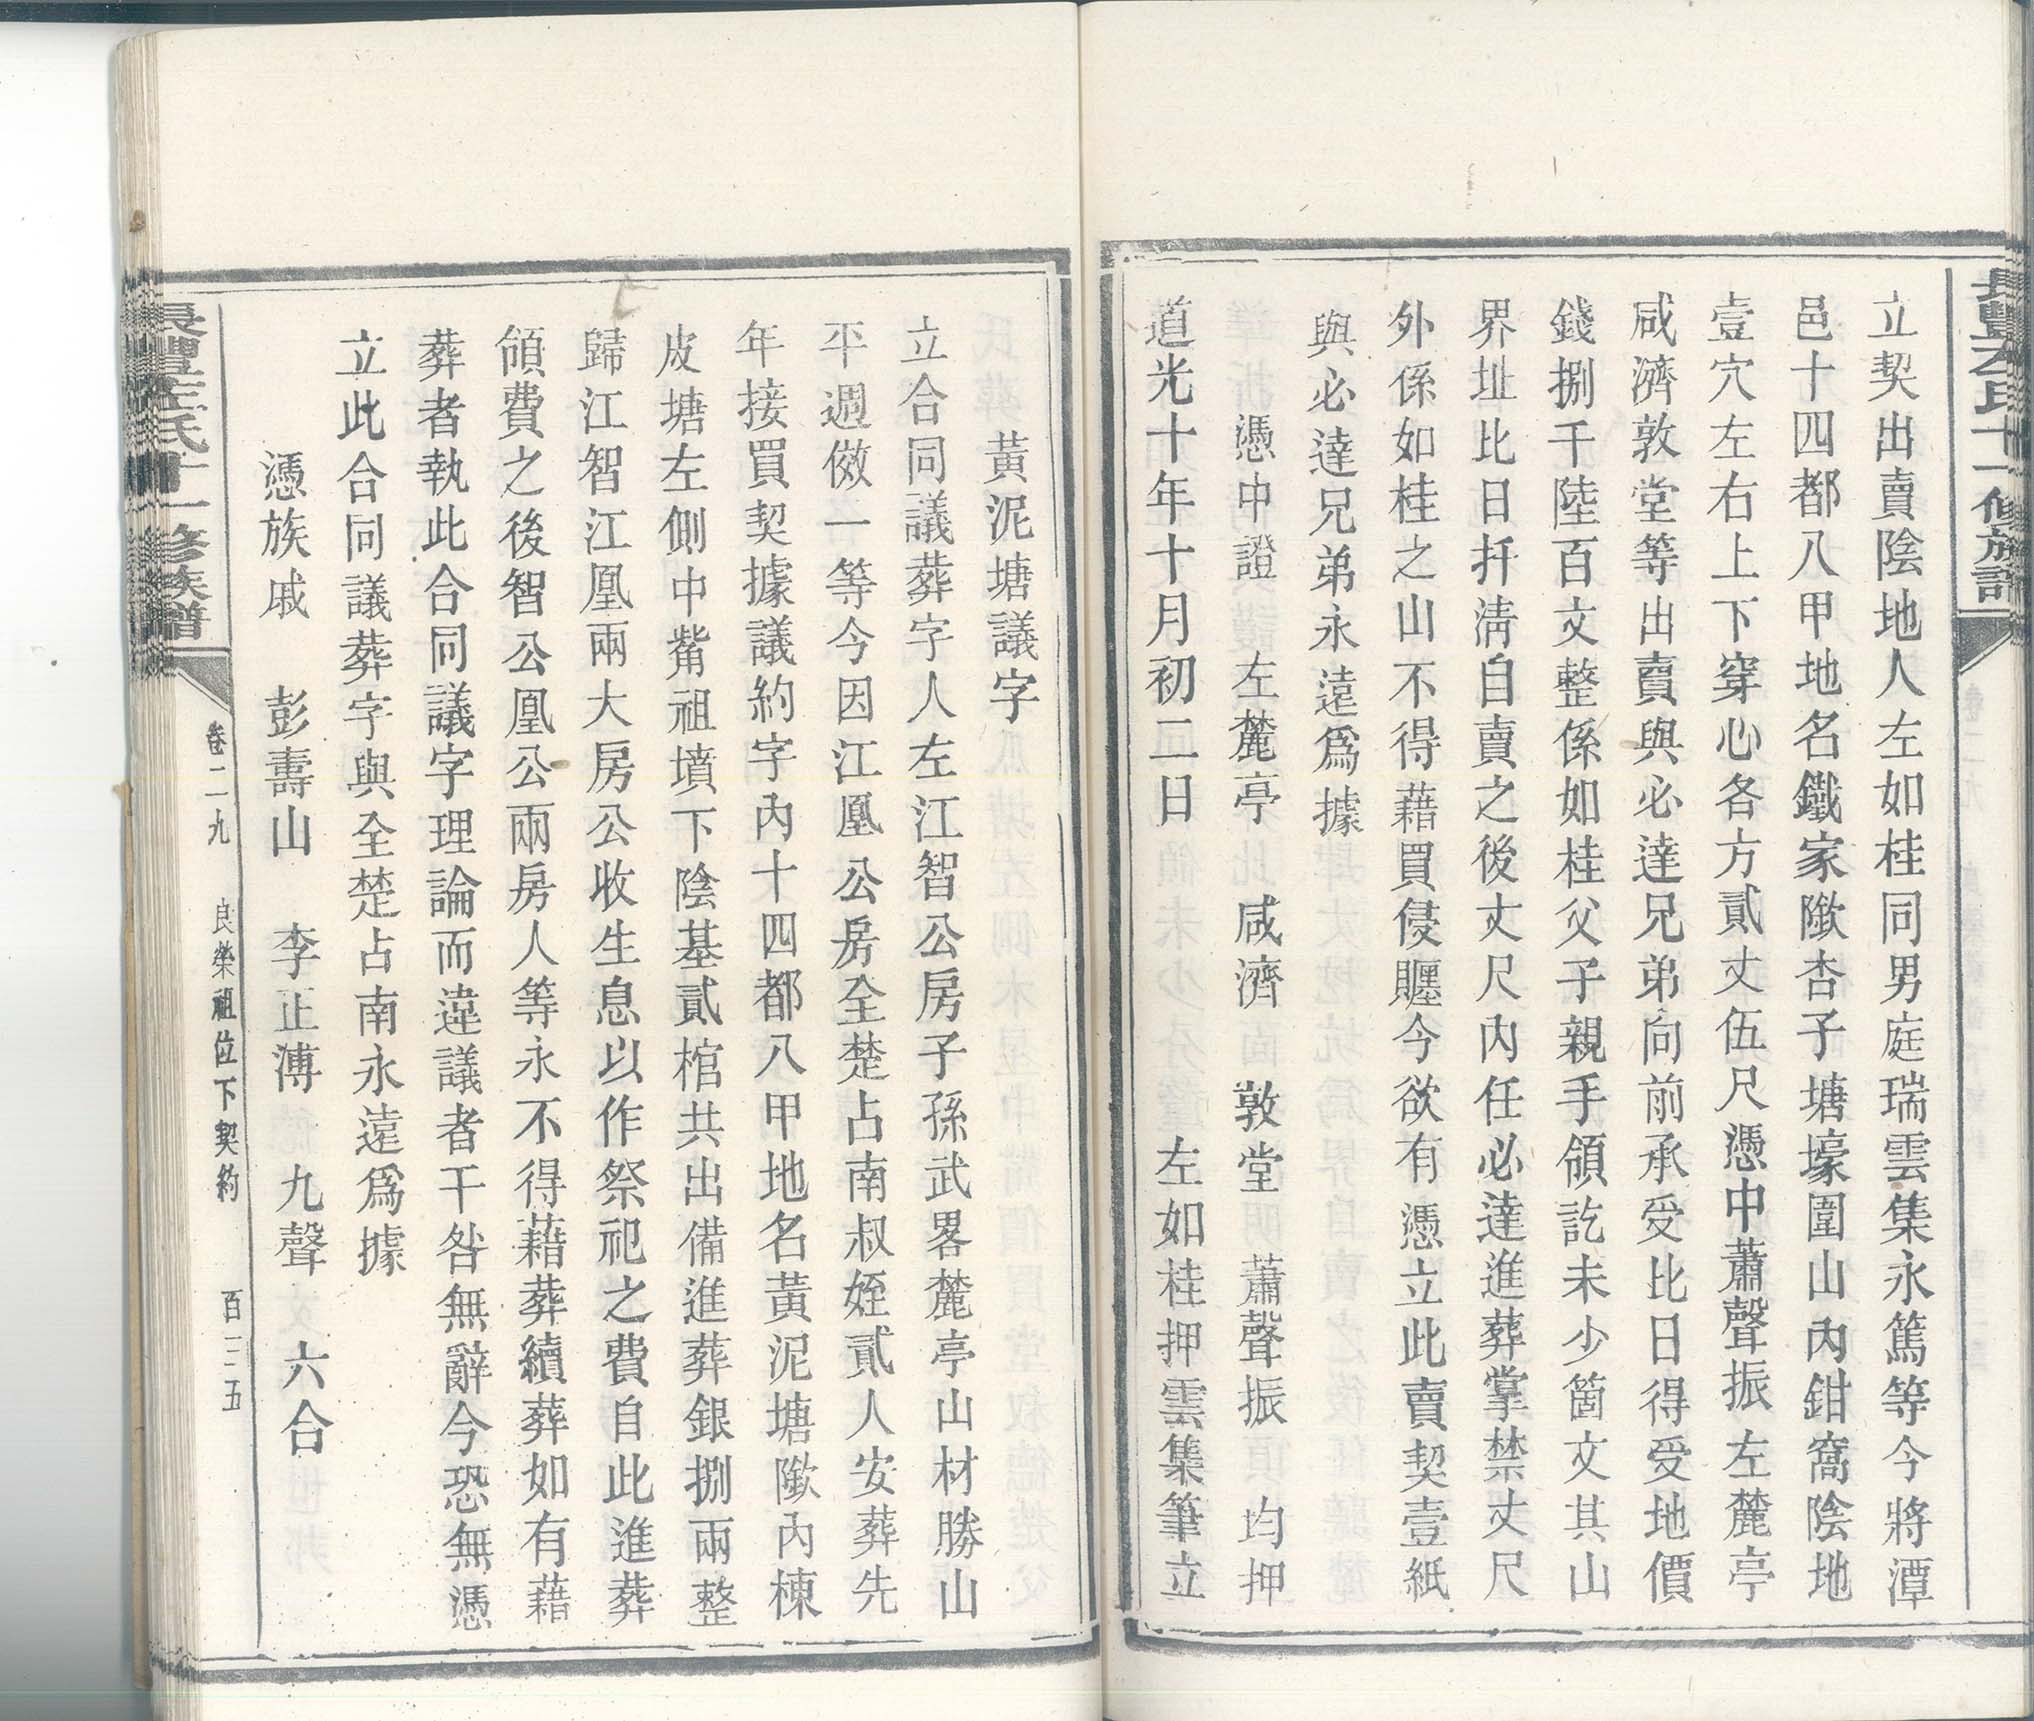 立契出賣陰地人左如桂同男庭瑞雲集永篤等今將潭
邑十四都八甲地名鐵家隞杏子塘壕圍山內鉗窩陰地
壹穴左右上下穿心各方貳丈伍尺憑中蕭聲振左麓亭
咸濟敦堂等出賣與必達兄弟向前承受比日得受地價
錢捌千陸百文整係如桂父子親手領訖未少箇文其山
界址比日扦淸自賣之後丈尺內任必達進葬掌禁丈尺
外係如桂之山不得藉買侵賍今欲有憑立此賣契壹紙
與必達兄弟永遠爲據
憑中證 左麓亭 咸濟 敦堂 蕭聲振 均押
道光十年十月初二日 左如桂押雲集筆立
黃泥塘議字
立合同議葬字人左江智公房子孫武畧麓亭山材勝山
平週倣一等今因江凰公房全楚占南叔姪貳人安葬先
年接買契據議約字內十四都八甲地名黃泥塘隞內棟
皮塘左側中觜祖墳下陰基貳棺共出備進葬銀捌兩整
歸江智江凰兩大房公收生息以作祭祀之費自此進葬
領費之後智公凰公兩房人等永不得藉葬續葬如有藉
葬者執此合同議字理論而違議者干咎無辭今恐無憑
立此合同議葬字與全楚占南永遠爲據
憑族戚 彭壽山 李正溥 九聲 六合
長豐左氏十一修族譜
卷二九 良榮祖位下契約 百三五